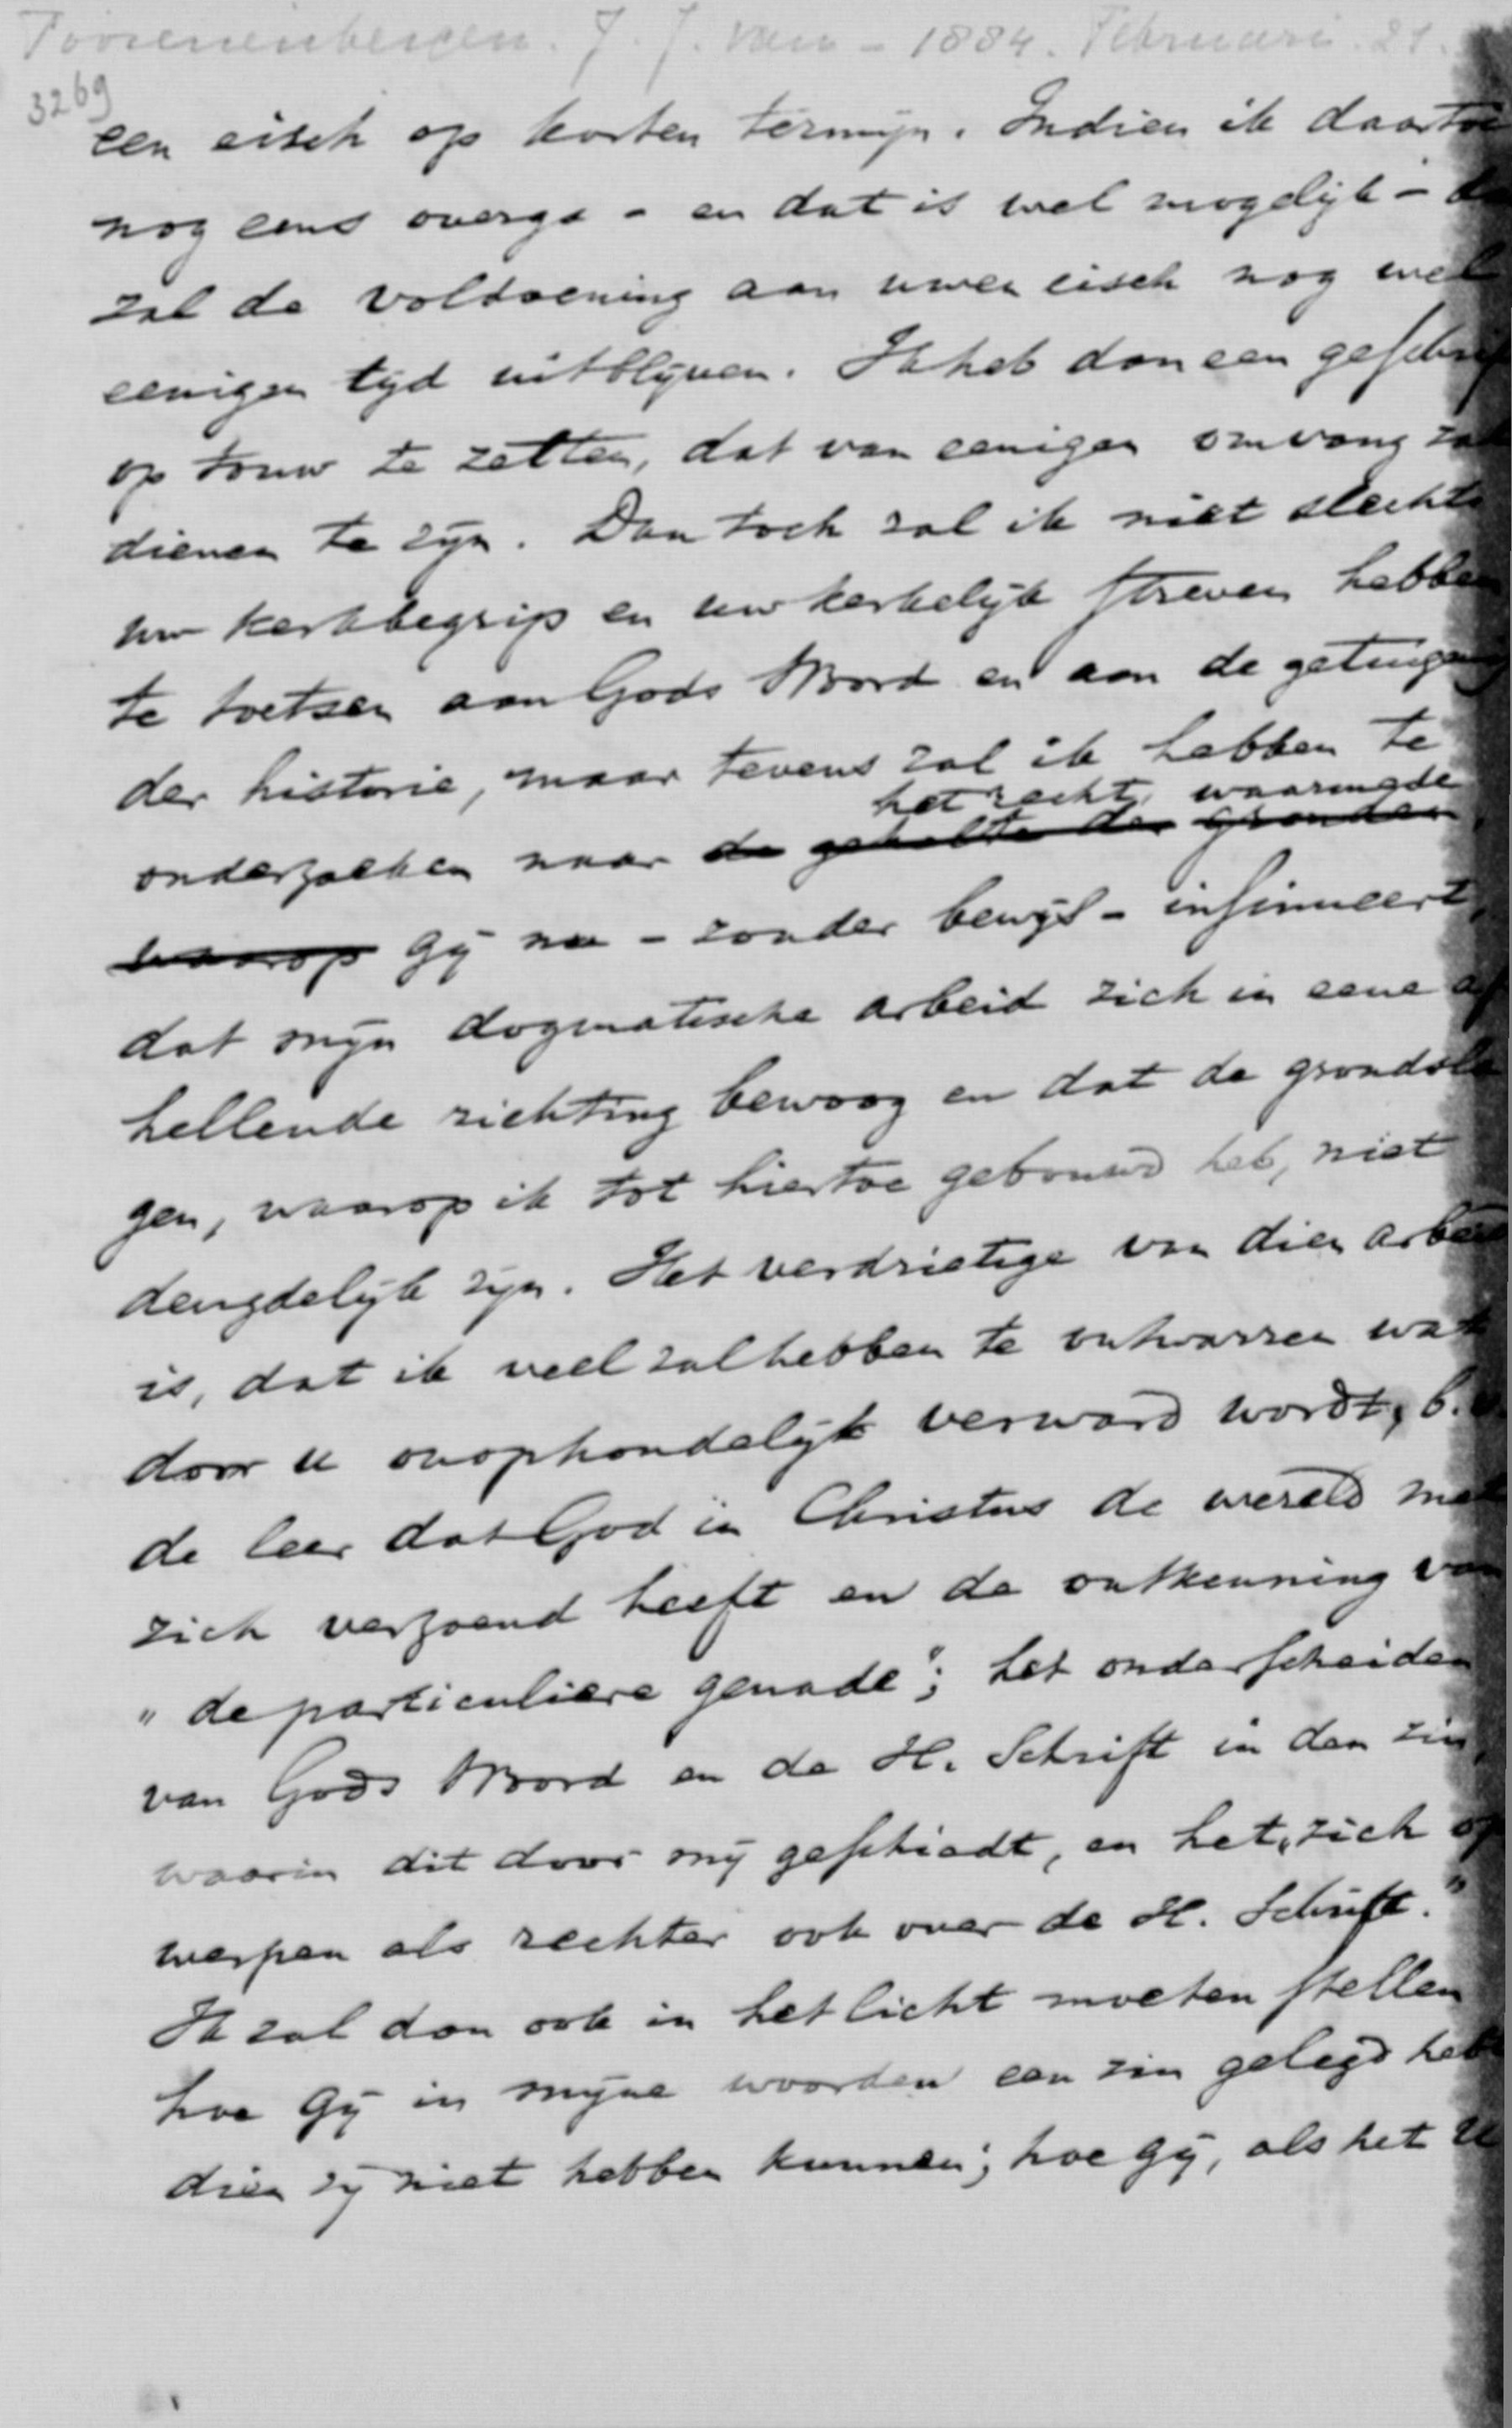 Toorenenbergen. J. J. van - 1884. Februari. 21.
3269
een eisch op korten termijn. Indien ik daartoe
nog eens overga - en dat is wel mogelijk -
zal de voldoening aan uwen eisch nog wel
eenigen tijd uitblijven. Ik heb dan een geschrif
op touw te zetten, dat van eenigen omvang zal
dienen te zijn. Dan toch zal ik niet slechts
uw kerkbegrip en uw kerkelijk streven hebben
te toetsen aan Gods Woord en aan de getuigen
der historie, maar tevens zal ik hebben te
het recht, waarmede
onderzoeken naar de gehalte der gronden
waarop gij nu - zonder bewijs - insinueert,
dat mijn dogmatische arbeid zich in eene af
hellende richting bewoog en dat de grondsla
gen, waarop ik tot hiertoe gebouwd heb, niet
deugdelijk zijn. Het verdrietige van dien arbeid
is, dat ik veel zal hebben te ontwarren wat
door u onophoudelijk verward wordt, b.v.
de leer dat God in Christus de wereld met
zich verzoend heeft en de ontkenning van
"de particuliere genade"; het onderscheiden
van Gods Woord en de H. Schrift in den zin,
waarin dit door mij geschiedt, en het "zich op
werpen als rechter ook over de H. Schrift."
Ik zal dan ook in het licht moeten stellen
hoe gij in mijne woorden een zin gelegd hebt
dien zij niet hebben kunnen; hoe gij, als het U